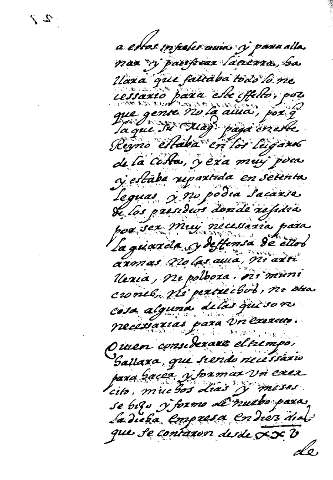 a estos infieles avia y para alla
nar y pacificar la tierra, ha
llara que faltaba todo lo ne
cessario para este effeto, por
que gente no la avia, por q
la que Su Magd. paga en este
Reyno estaba en los lugares
de la Costa, y era muy poca
y estaba repartida en setenta
leguas, y no podia sacarse
de los presidios donde residia
por ser muy necessaria para
la guarda, y deffensa de ellos
armas No las avia, Ni arti
lleria, Ni polbora, ni muni
ciones, Ni pertrechos, ni otra
cosa alguna de las que son
necessarias para Un exercito.
Quien considerare el tiempo,
hallara, que siendo necessario
para hacer y formar Un exer
cito, muchos dias y meses
se hizo y formo de nuebo para
la dicha empresa en diez dias
que se contaron desde XXV
de